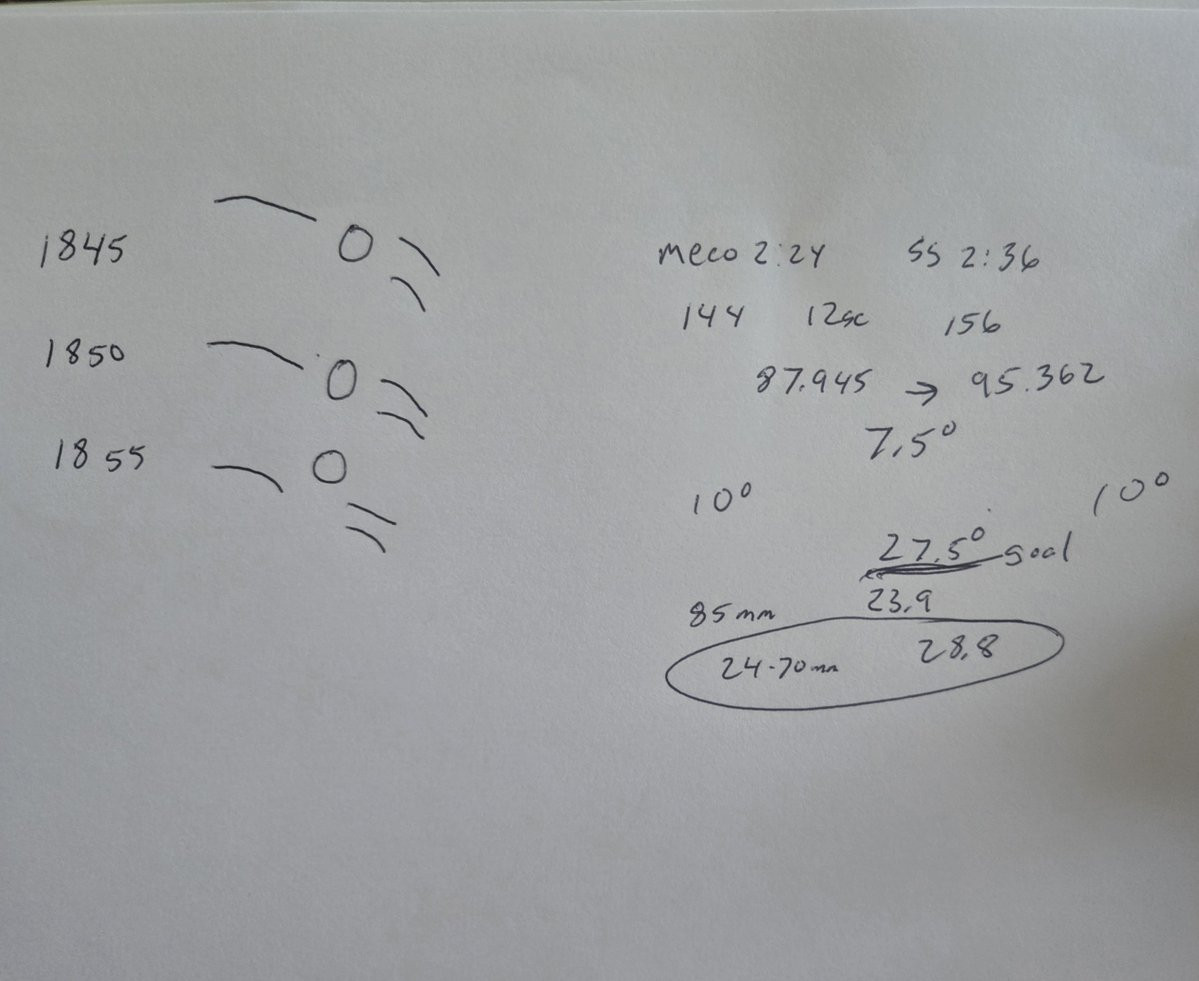 1845
1850
1855
meco 2:24 SS 2:36
144 12sec 156
87.945 → 95.362
7.5°
10° 10°
27.5° goal
85mm 23.9
24-70mm 28.8